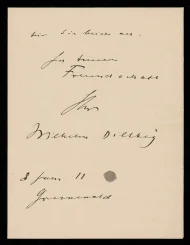 für Sie beide all.
In treuer
Freundschaft
Ihr
Wilhelm Dilthey
8 Juni 11
Grunewald